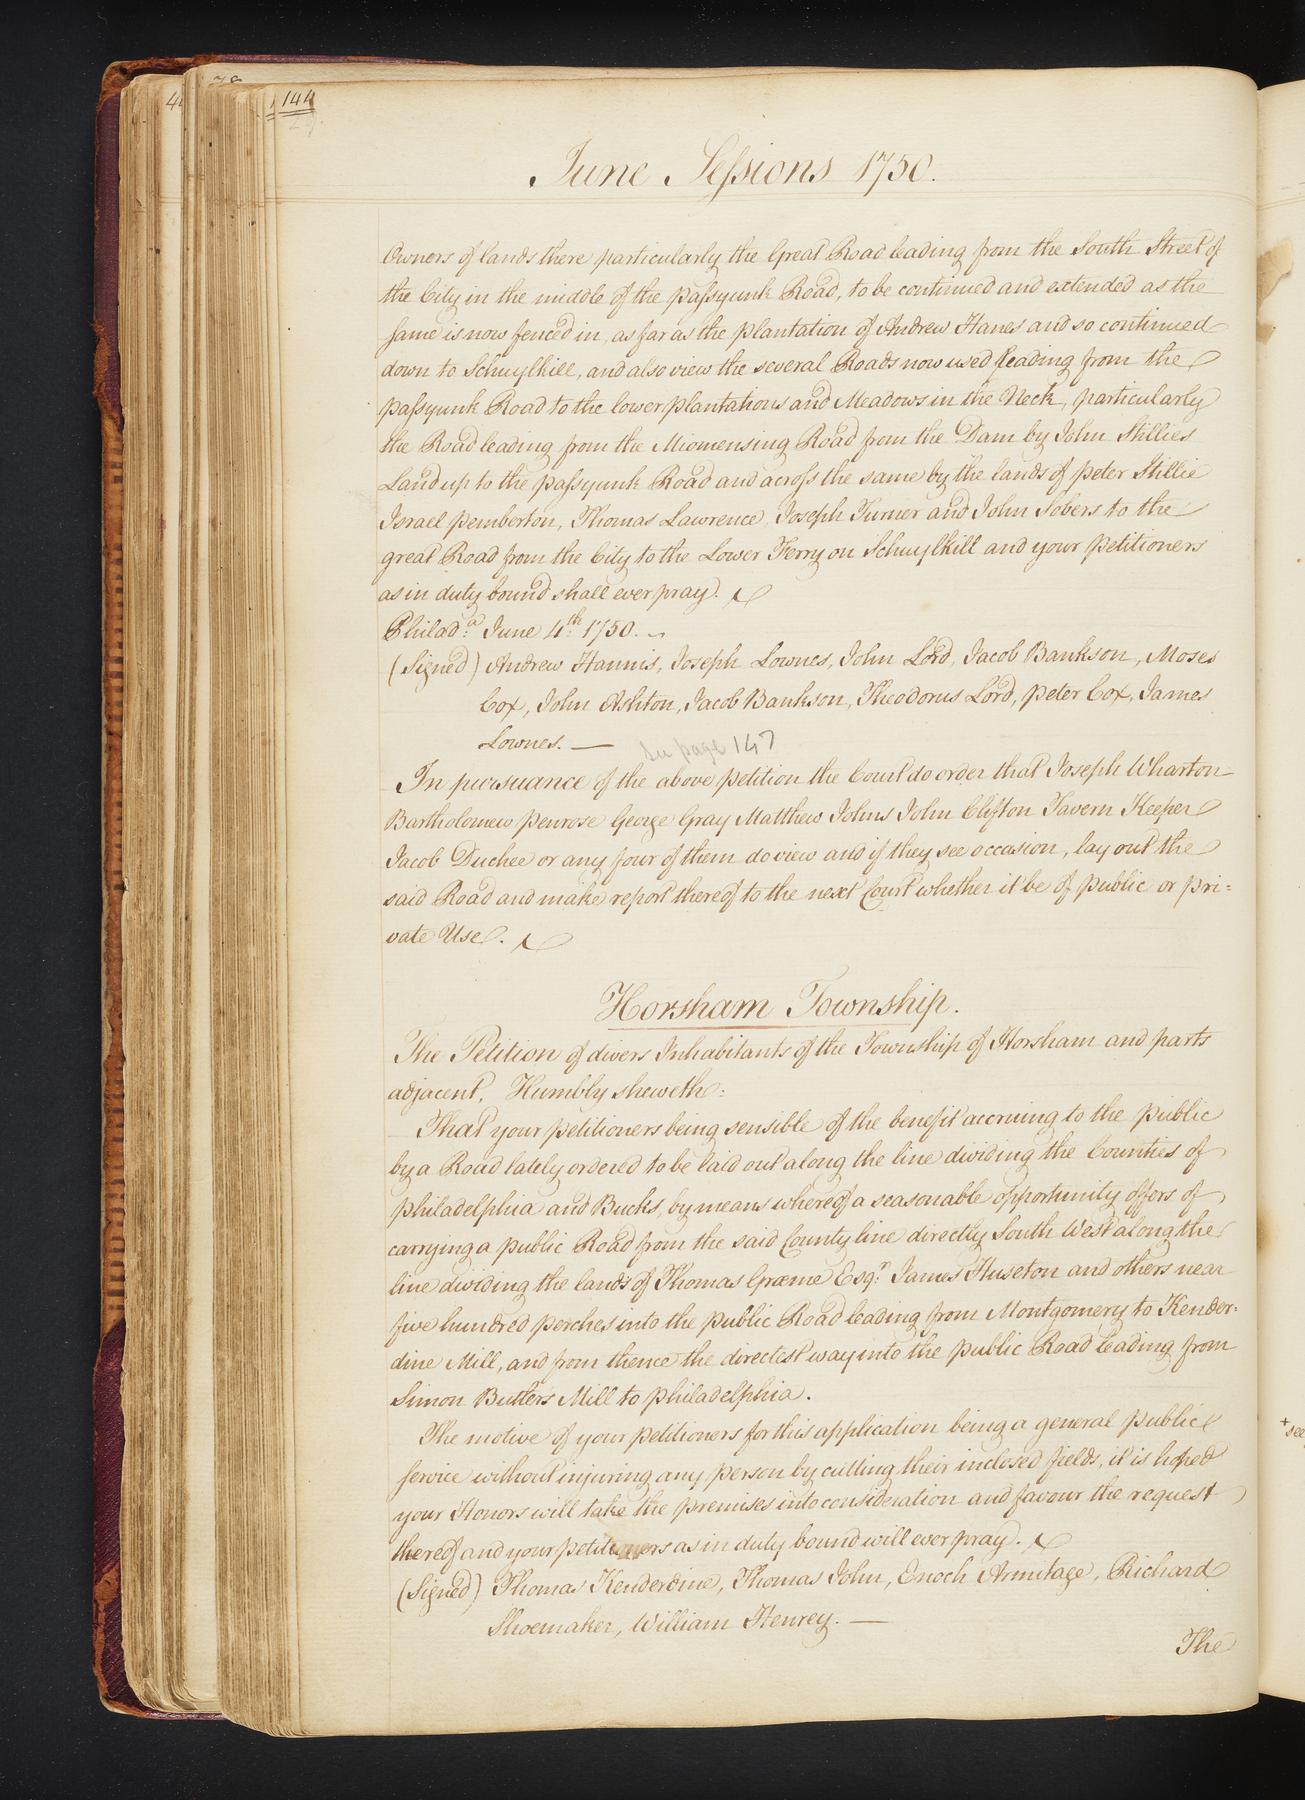 144
June Sessions 1750.
Owners of lands there particularly the Great Road leading from the South Street of
the City in the middle of the passyunk Road, to be continued and extended as the
same is now fenced in, as far as the plantation of Andrew Hanes and so continued
down to Schuylkill, and also view the several Roads now used leading from the
passyunk Road to the lower plantations and Meadows in the Neck, particularly
the Road leading from the Miomensing Road from the Dam by John Stillies
Land up to the passyunk Road and across the same by the lands of peter Stillie
Israel pemberton, Thomas Lawrence, Joseph Turner and John Sobers to the
great Road from the City to the Lower Ferry on Schuylkill and your petitioners
as in duty bound shall ever pray.
Philad.a June 4th 1750.
(Signed) Andrew Hannis, Joseph Lownes, John Lord, Jacob Bankson, Moses
Cox, John Ashton, Jacob Bankson, Theodorus Lord, peter Cox, James
Lownes. — page 147
In pursuance of the above petition the Court do order that Joseph Wharton
Bartholomew penrose George Gray Matthew Johns John Clifton Tavern Keeper
Jacob Duchee or any four of them do view and if they see occasion, lay out the
said Road and make report thereof to the next Court whether it be of public or pri=
vate Use.
Horsham Township.
The Petition of divers Inhabitants of the Township of Horsham and parts
adjacent. Humbly sheweth:
That your petitioners being sensible of the benefit accruing to the public
by a Road lately ordered to be laid out along the line dividing the Counties of
philadelphia and Bucks, by means whereof a seasonable opportunity offers of
carrying a public Road from the said County line directly South West along the
line dividing the lands of Thomas Græme Esqr. James Huseton and others near
five hundred perches into the public Road leading from Montgomery to Kender=
dine Mill, and from thence the directest way into the public Road leading from
Simon Butlers Mill to philadelphia.
The motive of your petitioners for this application being a general public
service without injuring any person by cutting their inclosed fields, it is hoped
your Honors will take the premises into consideration and favour the request
thereof and your petitioners as in duty bound will ever pray.
(Signed) Thomas Kenderdine, Thomas John, Enoch Armitage, Richard
Shoemaker, William Henrey. —
The